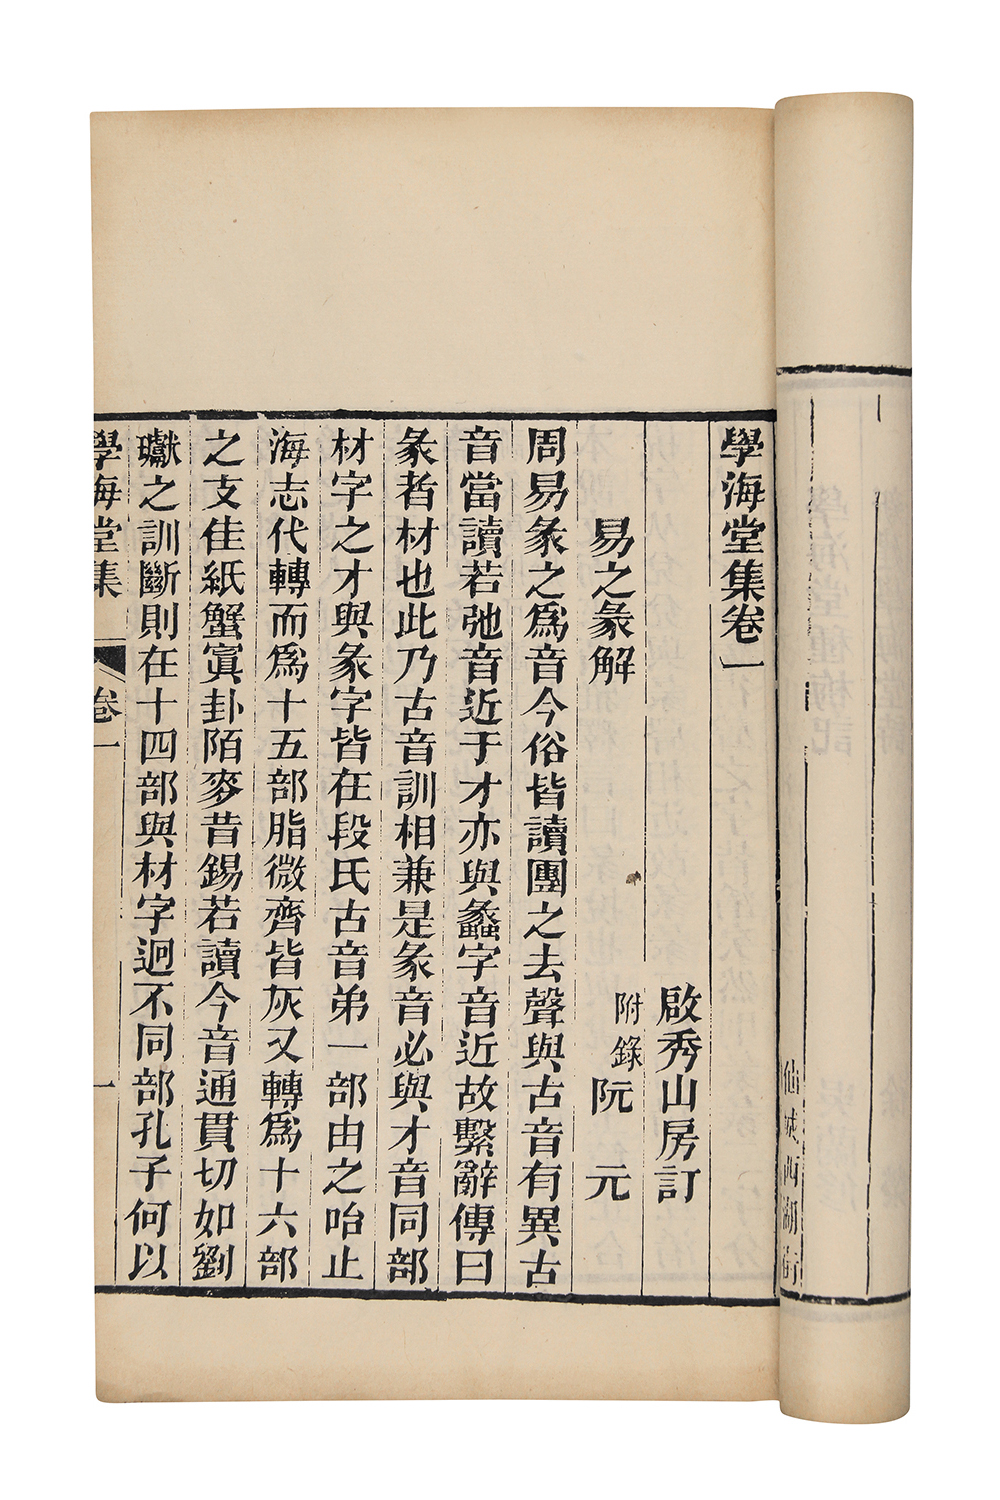 學海堂集卷一
啟秀山房訂
易之彖解 附錄 阮 元
周易彖之爲音今俗皆讀團之去聲與古音有異古
音當讀若弛音近于才亦與蠡字音近故繫辭傳曰
彖者材也此乃古音訓相兼是彖音必與才音同部
材字之才與彖字皆在段氏古音弟一部由之咍止
海志代轉而爲十五部脂微齊皆灰又轉爲十六部
之支佳紙蟹寘卦陌麥昔錫若讀今音通貫切如劉
瓛之訓斷則在十四部與材字迥不同部孔子何以
學海堂集 卷一 一
仙城西湖街